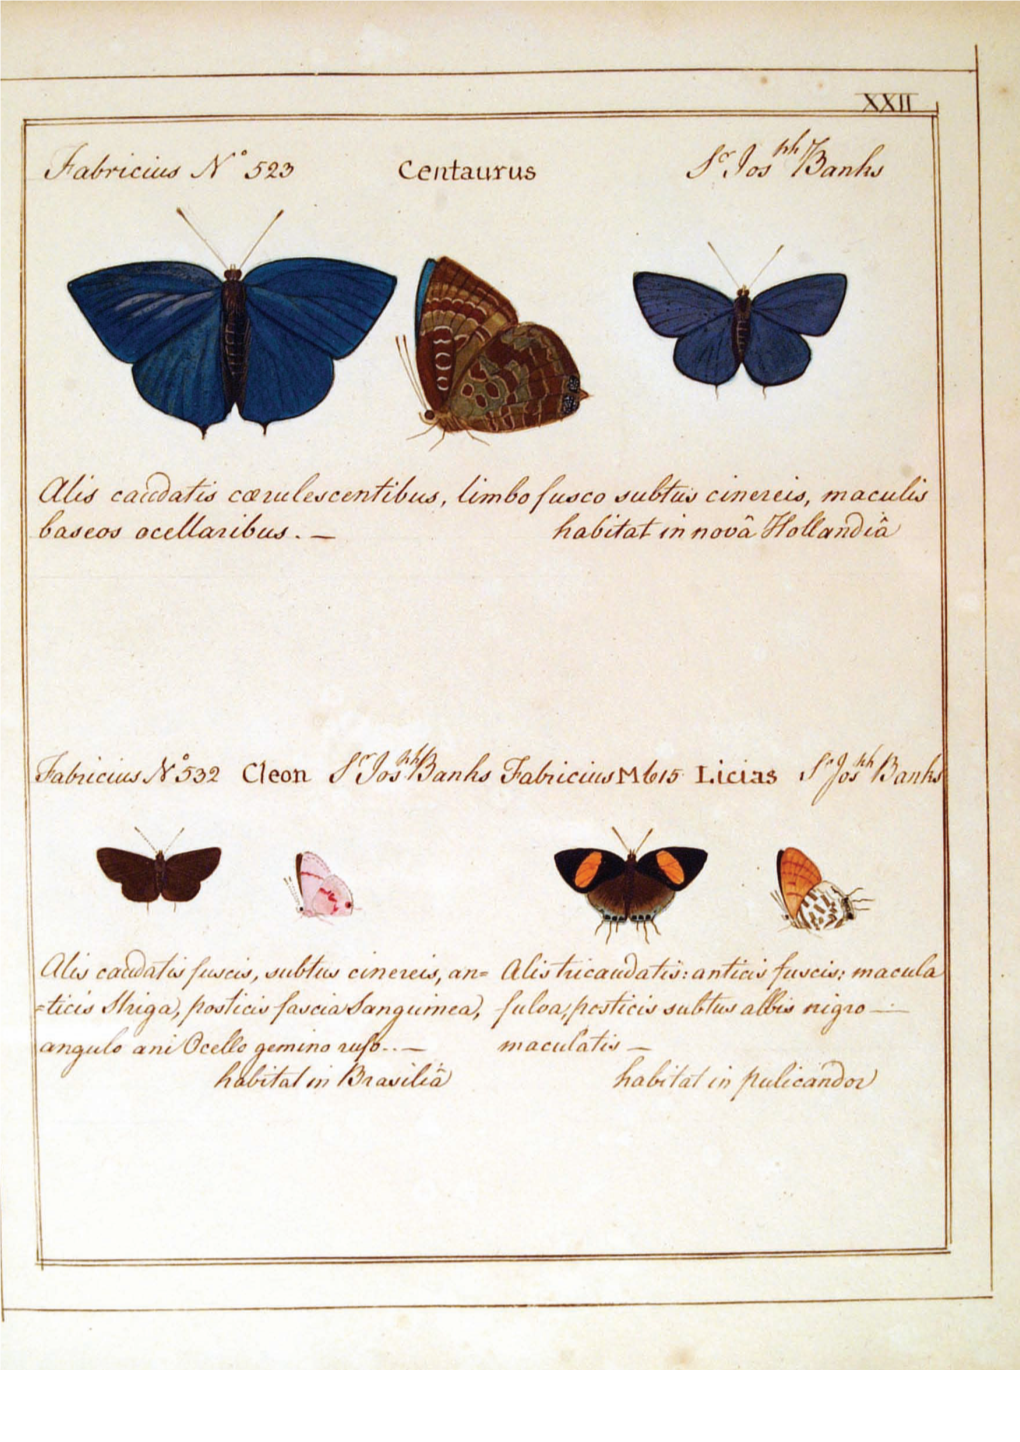 XXII
Fabricius N° 523 Centaurus Sr Josph Banks
Alis caudatis cœrulescentibus, limbo fusco subtus cinereis, maculis
baseos ocellaribus. — habitat in novâ Hollandiâ
Fabricius N° 532 Cleon Sr Josph Banks
Alis caudatis fuscis, subtus cinereis, an=
=ticis Striga, posticis fascia Sanguinea,
angulo ani Ocello gemino rufo. . —
habitat in Brasiliâ
Fabricius N 615 Licias Sr Josph Banks
Alis tricaudatis: anticis fuscis: macula
fulva, posticis subtus albis nigro —
maculatis —
habitat in pulicandor